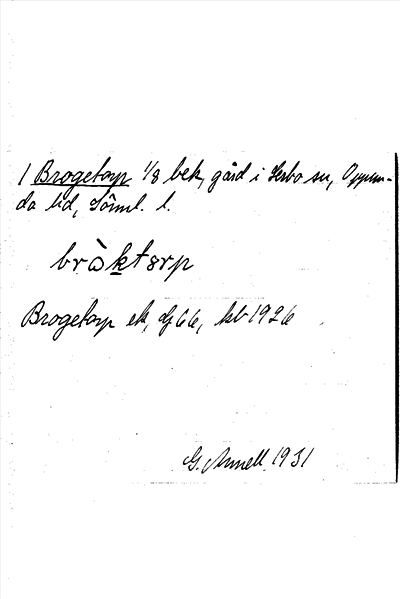 1 Brogetorp 1/8 bek, gård i Lerbo sn, Oppun-
da hd, Sörml. l.
bràktɛrp
Brogetorp ek, Gf 66, kb 1926
G. Annell 1931